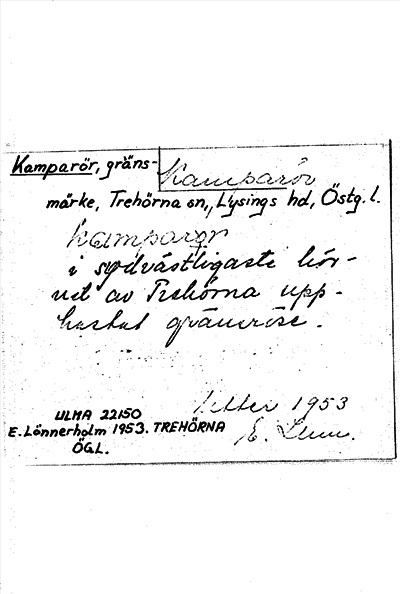 Kamparör, gräns-
Kamparör
märke, Trehörna sn., Lysings hd, Östg. l.
Kamparör
i sydvästligaste hör-
net av Trehörna upp-
kastat gränsröse.
1953
ULMA 22150
E. Lönnerholm 1953. TREHÖRNA
E. Lönn.
ÖGL.